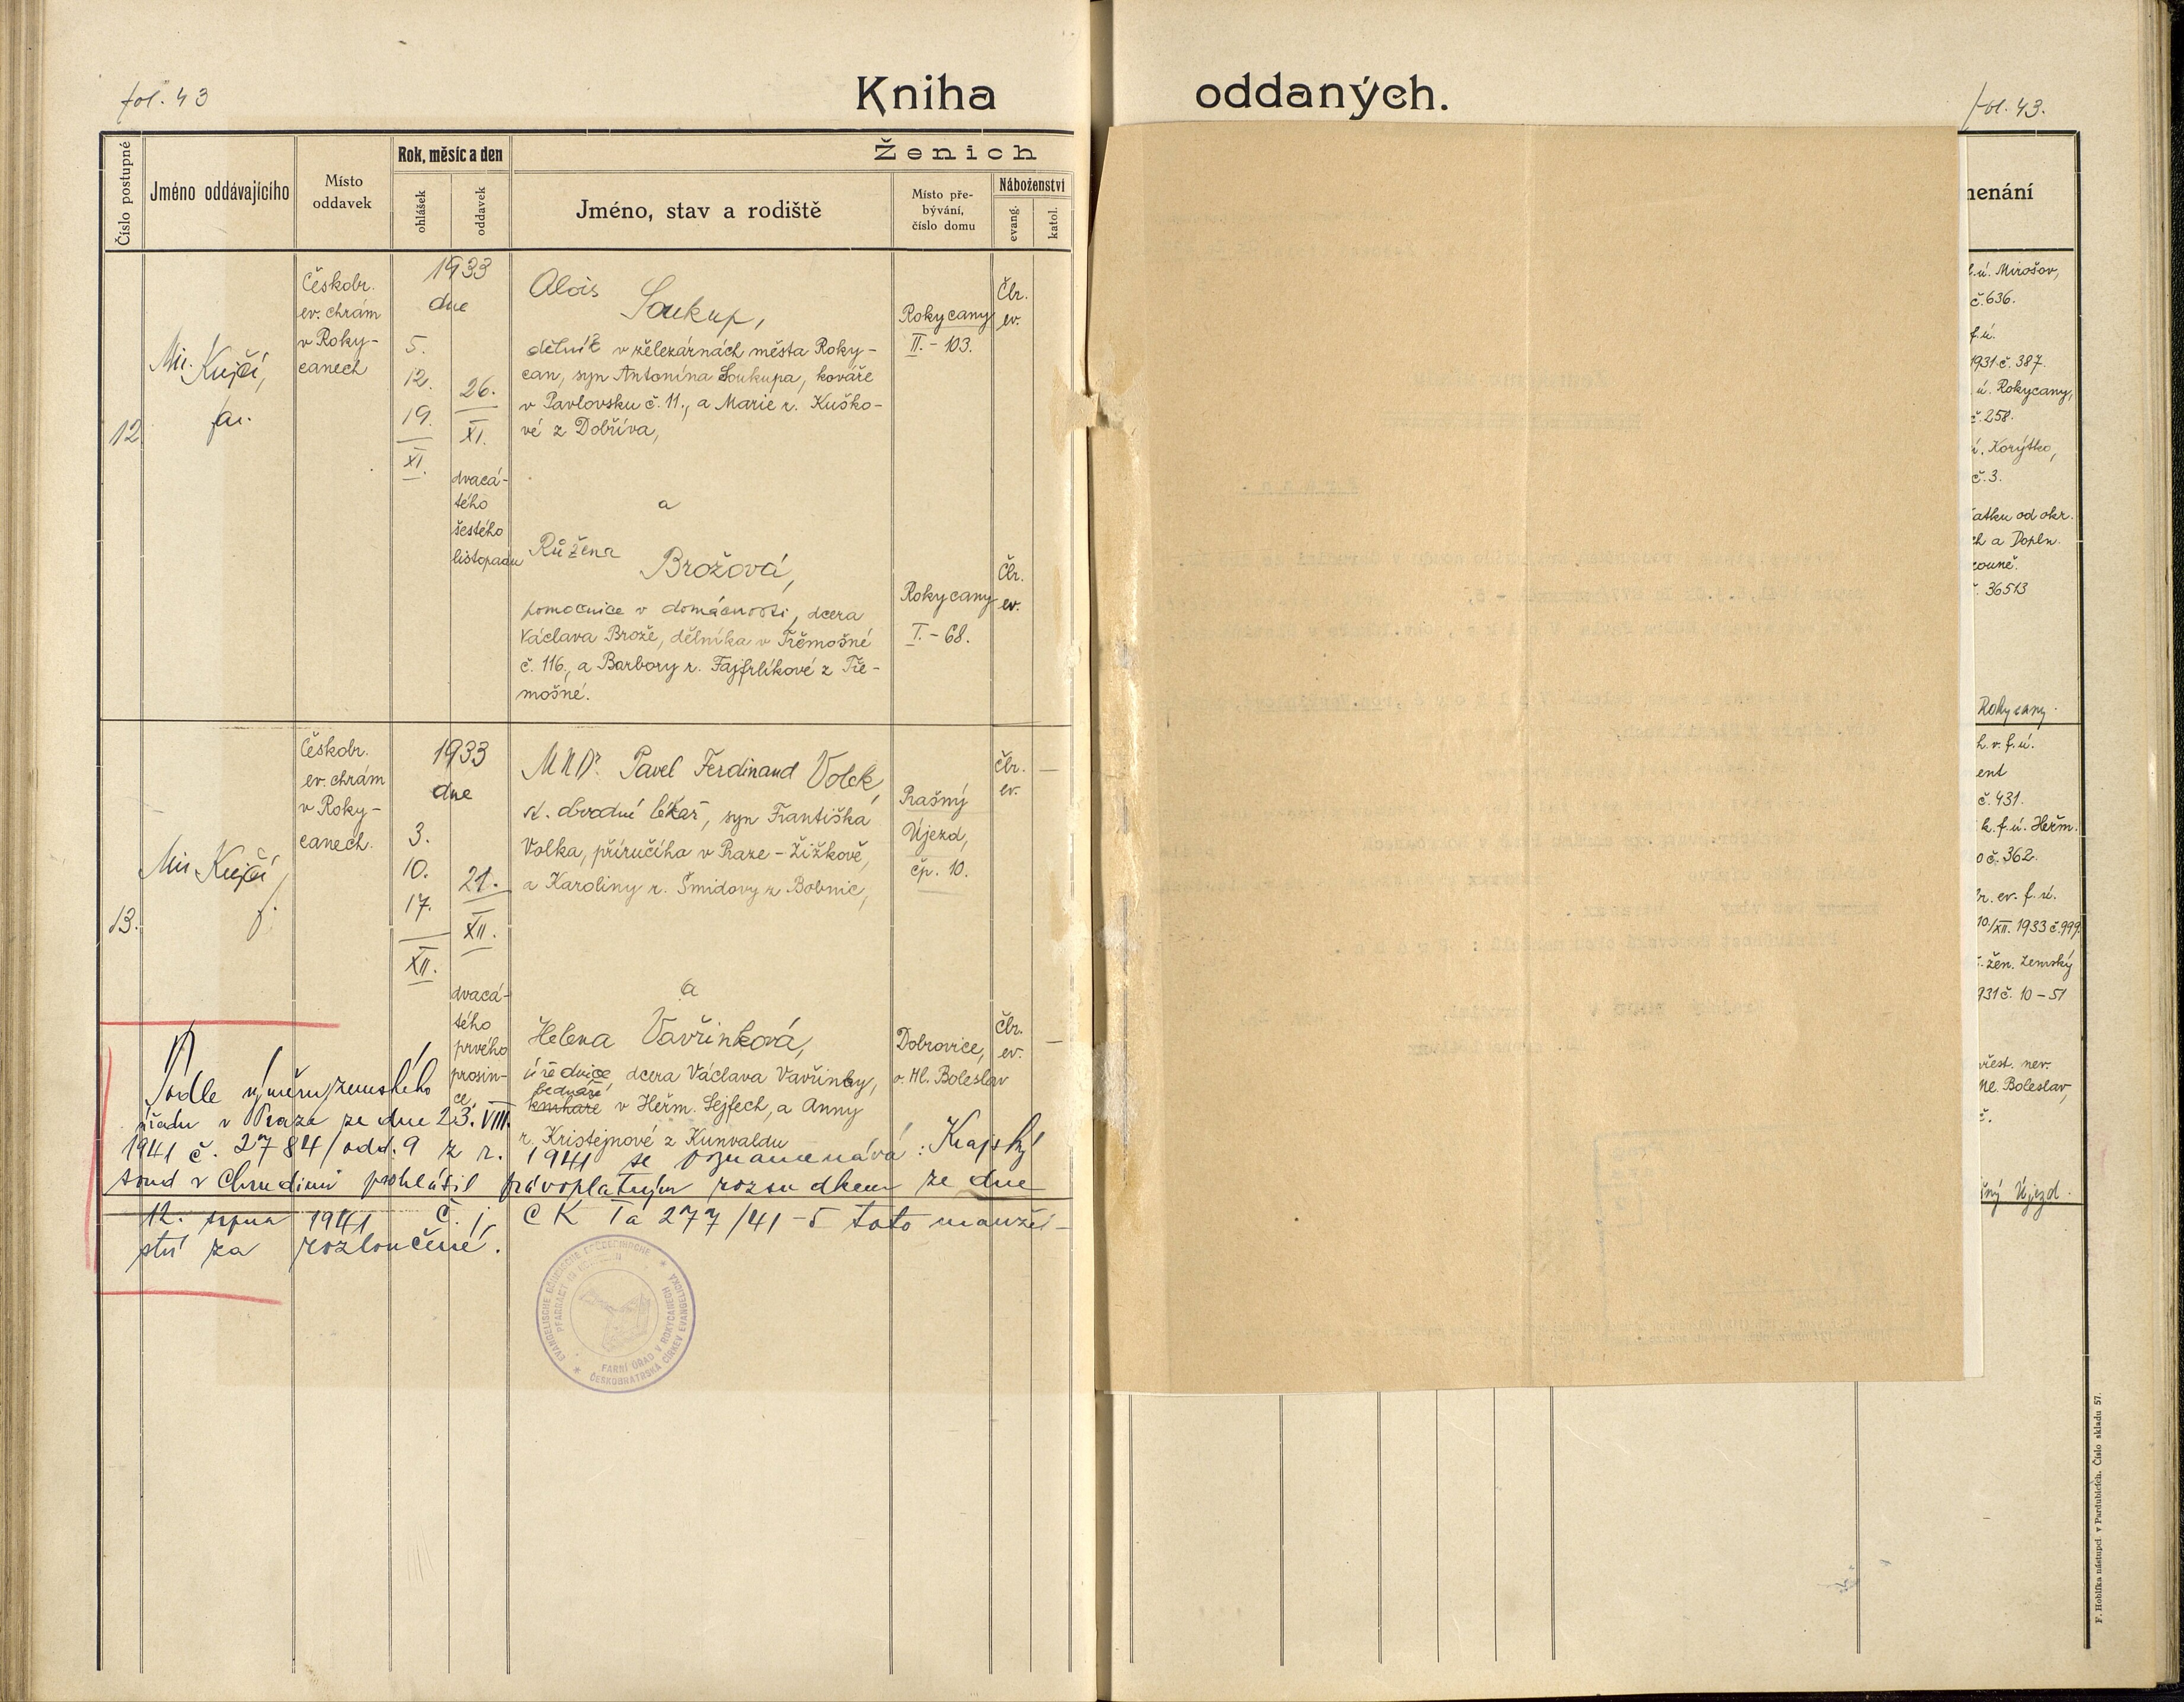 fol. 43
Kniha oddaných.
fol. 43.
Číslo postupné
Jméno oddávajícího
Místo oddavek
Rok, měsíc a den
ohlášek
oddavek
Ženich
Jméno, stav a rodiště
Místo pře-
bývání,
číslo domu
Náboženství
evang.
katol.
menání
12
Mir.
far.
Českobr.
ev. chrám
v Roky-
canech
1933
dne
5.
12.
19.
XI.
26.
XI.
dvacá-
tého
šestého
listopadu
Alois
Soukup,
dělník v železárnách města Roky-
can, syn Antonína Soukupa, kováře
v Pavlovsku č. 11., a Marie r. Kuško-
vé z Dobříva,
a
Růžena
Brožová,
pomocnice v domácnosti, dcera
Václava Brože, dělníka v Třemošné
č. 116., a Barbory r. Fajfrlíkové z Tře-
mošné.
Rokycany
II. - 103.
Rokycany
I. - 68.
Čbr.
ev.
Čbr.
ev.
ú. Mirošov,
č. 636.
f. ú.
1931 č. 387.
ú. Rokycany,
č. 258.
ú. Korýtko,
č. 3.
atku od okr.
ch a Dopln.
rouně.
36513
Rokycany.
13.
Mir
f.
Českobr.
ev. chrám
v Roky-
canech.
1933
dne
3.
10.
17.
XII.
21.
XII.
dvacá-
tého
prvého
prosin-
ce
MUDr. Pavel Ferdinand Volek,
st. obvodní lékař, syn Františka
Volka, příručího v Praze - Žižkově,
a Karoliny r. Šmídovy z Bobnic,
a
Helena Vavřinková,
úřednice dcera Václava Vavřinky,
bednáře
v Heřm. Sejfech, a Anny
r. Kristejnové z Kunvaldu
Prašný
Újezd,
čp. 10.
Dobrovice,
o. Ml. Boleslav
čbr.
ev.
—
čbr.
ev.
—
h. v. f. ú.
ent
č. 431.
k. f. ú. Heřm.
o č. 362.
br. ev. f. ú.
10./XII. 1933 č. 999.
žen. Zemský
931 č. 10 - 51
přest. nev.
Ml. Boleslav,
č.
šný Újezd.
Podle výměru zemského
úřadu v Praze ze dne 23. VIII.
1941 č. 2784/odd. 9 z r. 1941 se poznamenává: Krajský
soud v Chrudimi prohlásil právoplatným rozsudkem ze dne
12. srpna 1941 č. j. C K Ia 277/41-5 toto manžel-
ství za rozloučené.
EVANGELISCHE BÖHMISCHE BRÜDERKIRCHE
PFARRAMT IN
FARNÍ ÚŘAD V ROKYCANECH
ČESKOBRATRSKÁ CÍRKEV EVANGELICKÁ
F. Hoblíka nástupci v Pardubicích. Číslo skladu 57.